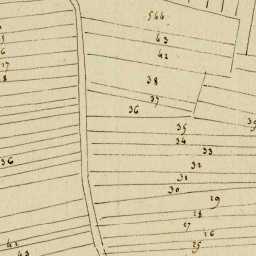 564
43
42
38
37
36
35
34
33
32
31
30
29
28
27
26
25
17
8
36
42
43